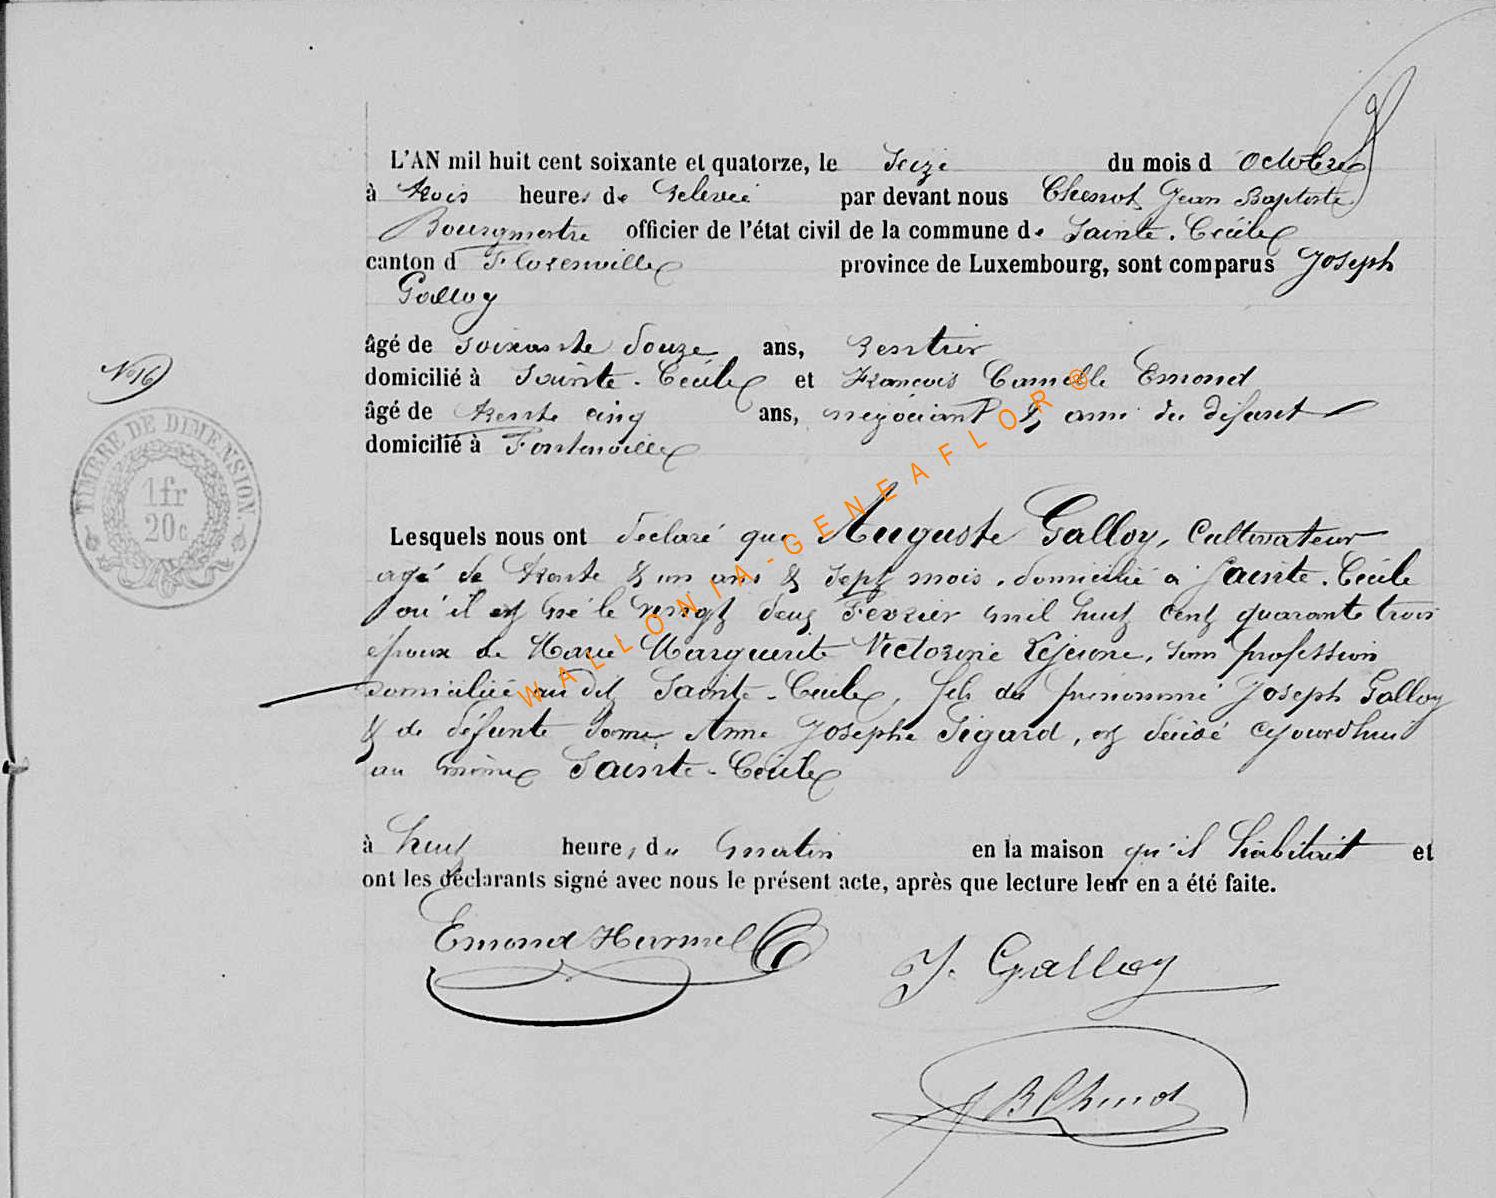 L'AN mil huit cent soixante et quatorze, le Seize du mois d'Octobre
à trois heures de relevée par devant nous Chenot Jean Baptiste
Bourgmestre officier de l'état civil de la commune de Sainte-Cécile
canton d Florenville province de Luxembourg, sont comparus Joseph
Galloy
âgé de soixante douze ans, rentier
domicilié à Sainte-Cécile et François Camille Emond
N° 16
âgé de trente cinq ans, négociant & ami du défunt
domicilié à Fontenoille
TIMBRE DE DIMENSION
1fr
20c
Lesquels nous ont déclaré que Auguste Galloy, Cultivateur
agé de trente & un ans & sept mois, domicilié à Sainte-Cécile
où il est né le vingt deux Février mil huit cent quarante trois
époux de Marie Marguerite Victorine Lejeune, sans profession
domiciliée au dit Sainte-Cécile, fils du prénommé Joseph Galloy
& de défunte Dame Anne Josephe Sigard, est décédé cejourd'hui
au même Sainte-Cécile
à huit heures du matin en la maison qu'il habitait et
ont les déclarants signé avec nous le présent acte, après que lecture leur en a été faite.
Emond Harmel
J. Galloy
JB Chenot
WALLONIA-GENEAFLOR®